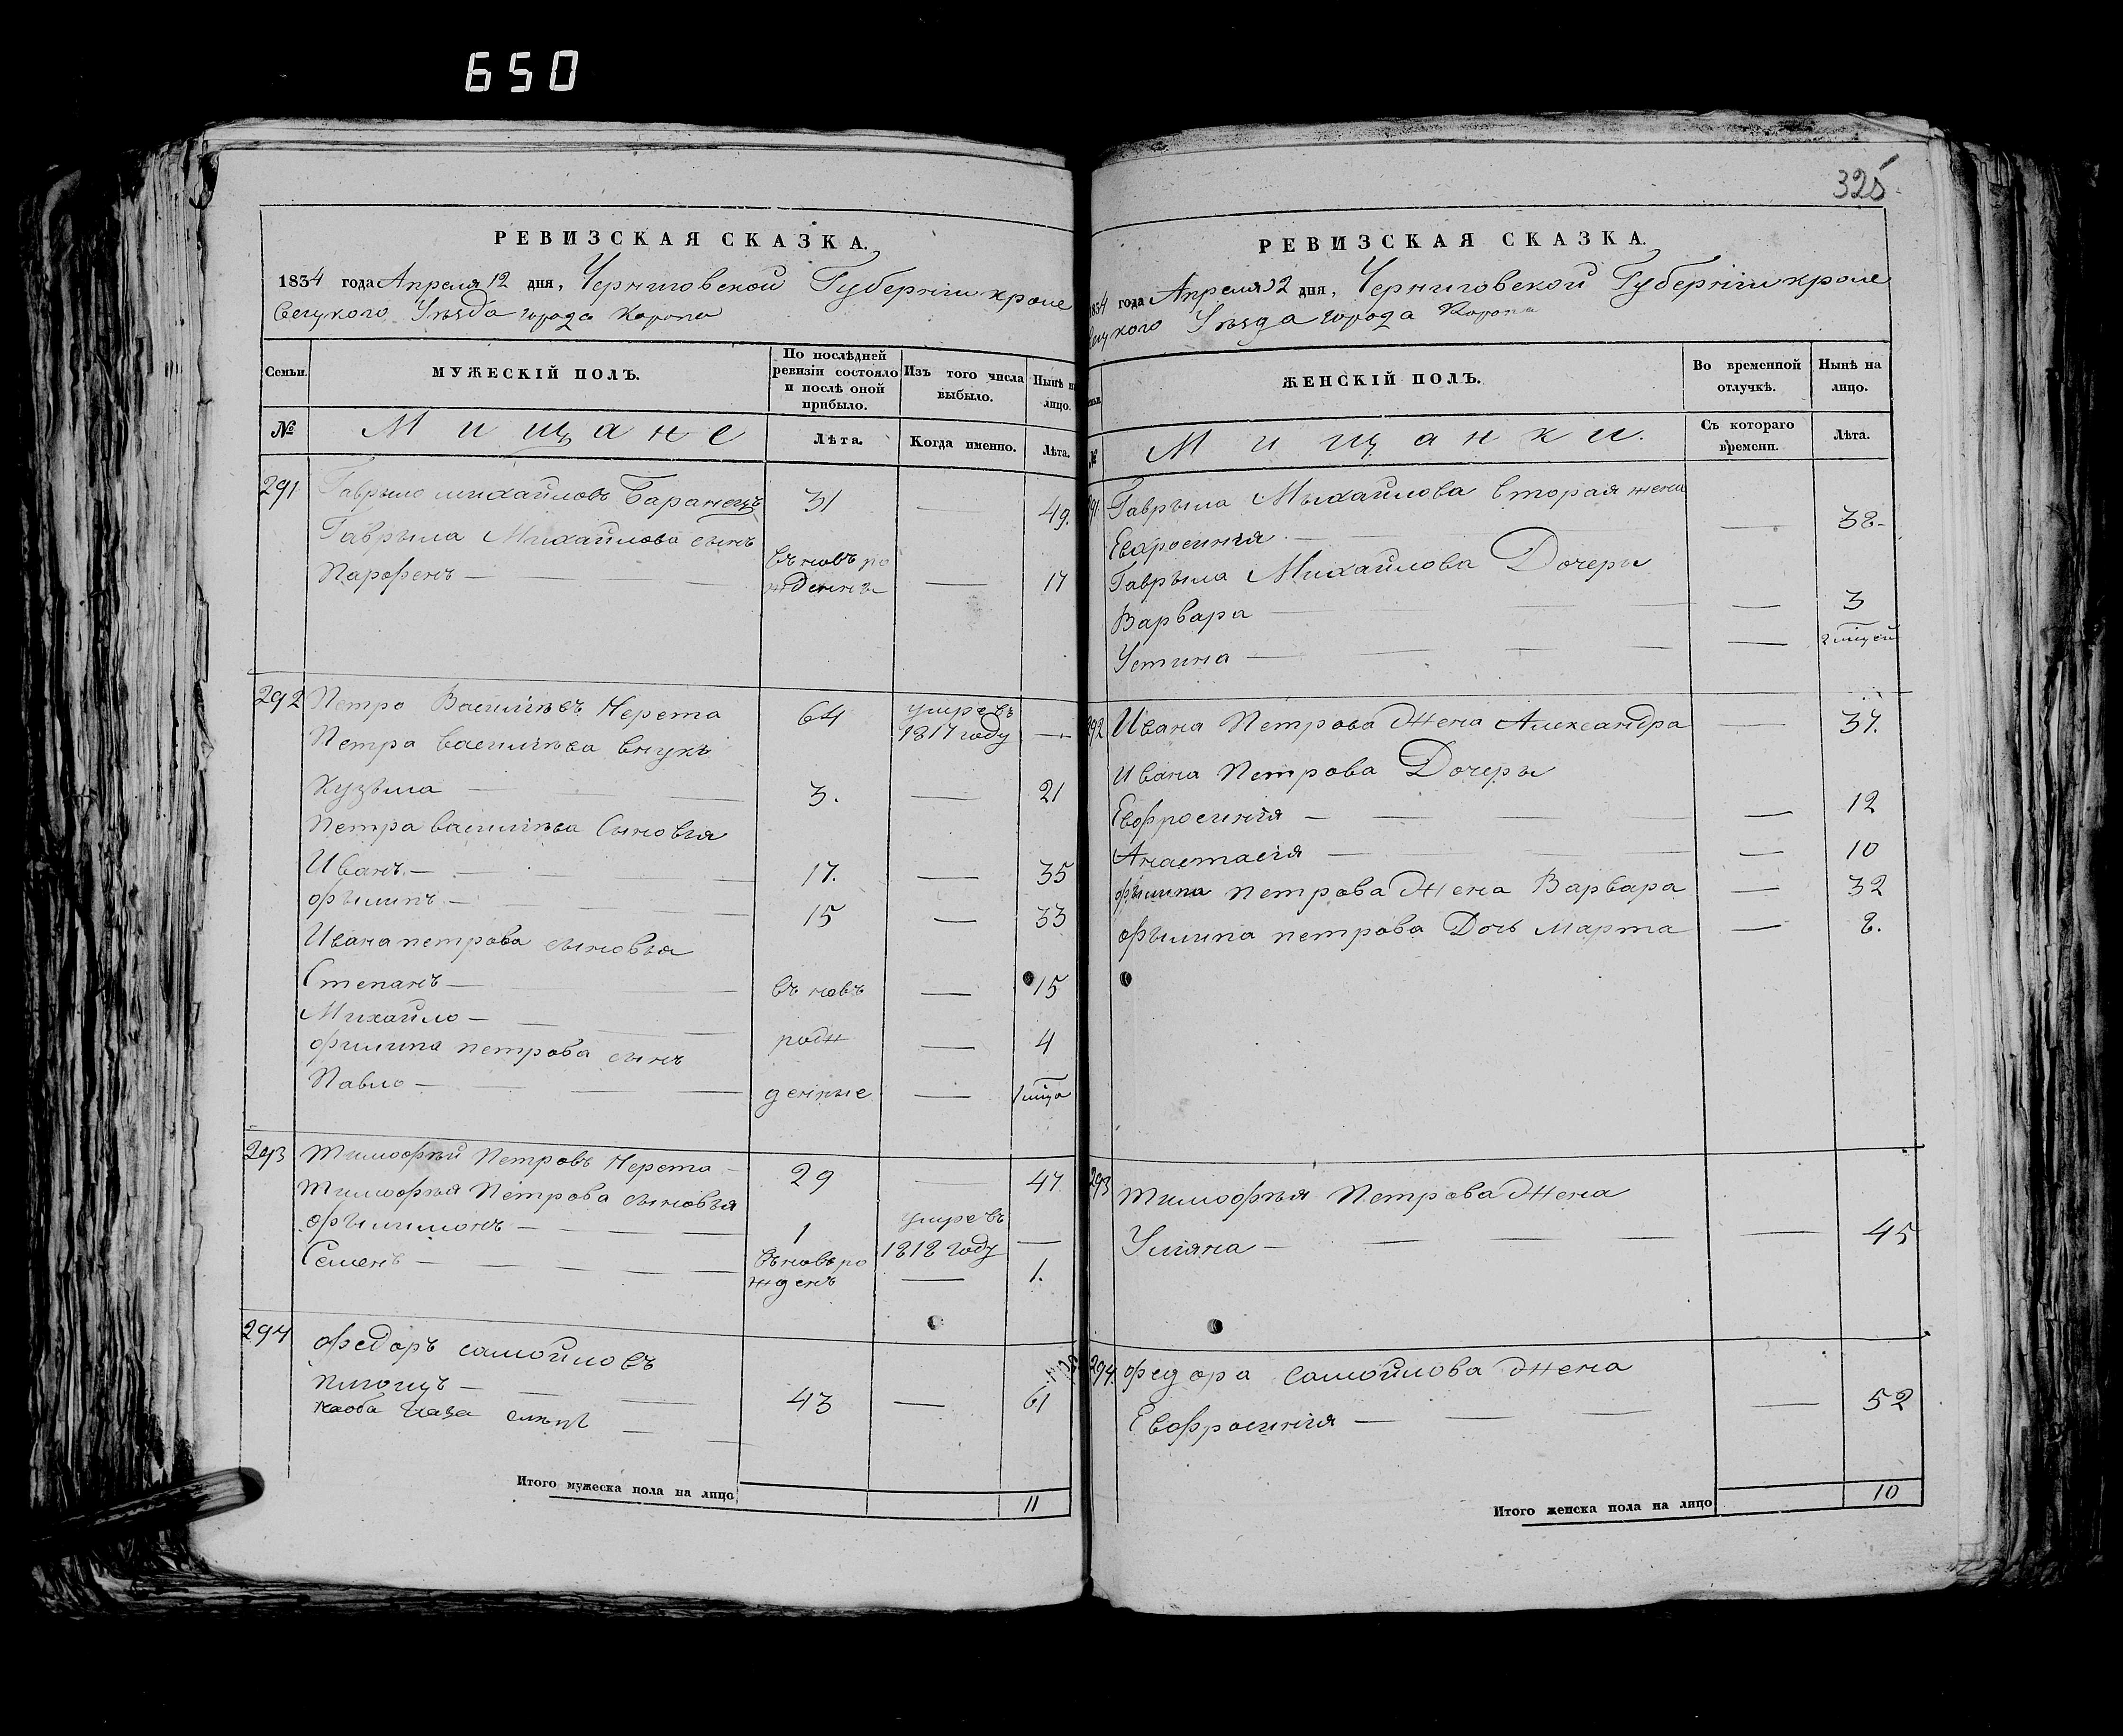 650
РЕВИЗСКАЯ СКАЗКА.
1834 года Апреля 12 дня, Черниговской Губернiи кроле
вецкого Уезда города Коропа
Семьи.
МУЖЕСКIЙ ПОЛЪ.
По послѣдней ревизiи состояло и послѣ оной прибыло.
Изъ того числа выбыло.
Нынѣ на лицо.
№
Мищане
Лѣта.
Когда именно.
Лѣта.
291 Гаврыло Михайловъ Баранецъ 31 — 49.
Гаврыла Михайлова сынъ
Парфенъ — въ новъ ро
жденны — 17
292 Петро Васильевъ Нерета 64 умре въ
1817 году —
Петра васильева внукъ
Кузьма — 3. — 21
Петра васильева сыновья
Иванъ — 17. — 35
фылипъ — 15 — 33
Ивана петрова сыновья
Степанъ — въ новъ — 15
Михайло — рож — 4
филипа петрова сынъ
Павло — денные — 1 мца
293 Тимофѣй Петровъ Нерета 29 47
Тимофѣя Петрова сыновья
фылимонъ — 1 умре въ
1818 году —
Семенъ — въ новъ ро
жденъ — 1.
294 федоръ самойловъ
43 — 61
Итого мужеска пола на лицо 11
325
РЕВИЗСКАЯ СКАЗКА.
1834 года Апреля 12 дня, Черниговской Губернiи кроле
вецкого Уезда города Коропа
ЖЕНСКIЙ ПОЛЪ.
Во временной отлучкѣ.
Нынѣ на лицо.
№
Мищанки.
Съ котораго времени.
Лѣта.
291. Гаврыла Мыхайлова вторая жена
Евфросинiя — 38
Гаврыла Михайлова Дочеры
Варвара — 3
Устина — 2 мцей
292 Ивана Петрова Жена Александра — 37.
Ивана Петрова Дочеры
Евфросинiя — 12
Анастасiя — 10
фылипа петрова Жена Варвара — 32
фылипа петрова Дочь Марта — 8.
293 Тимофѣя Петрова Жена
Уляна — 45
294. федора Самойлова Жена
Евфросинiя — 52
Итого женска пола на лицо 10